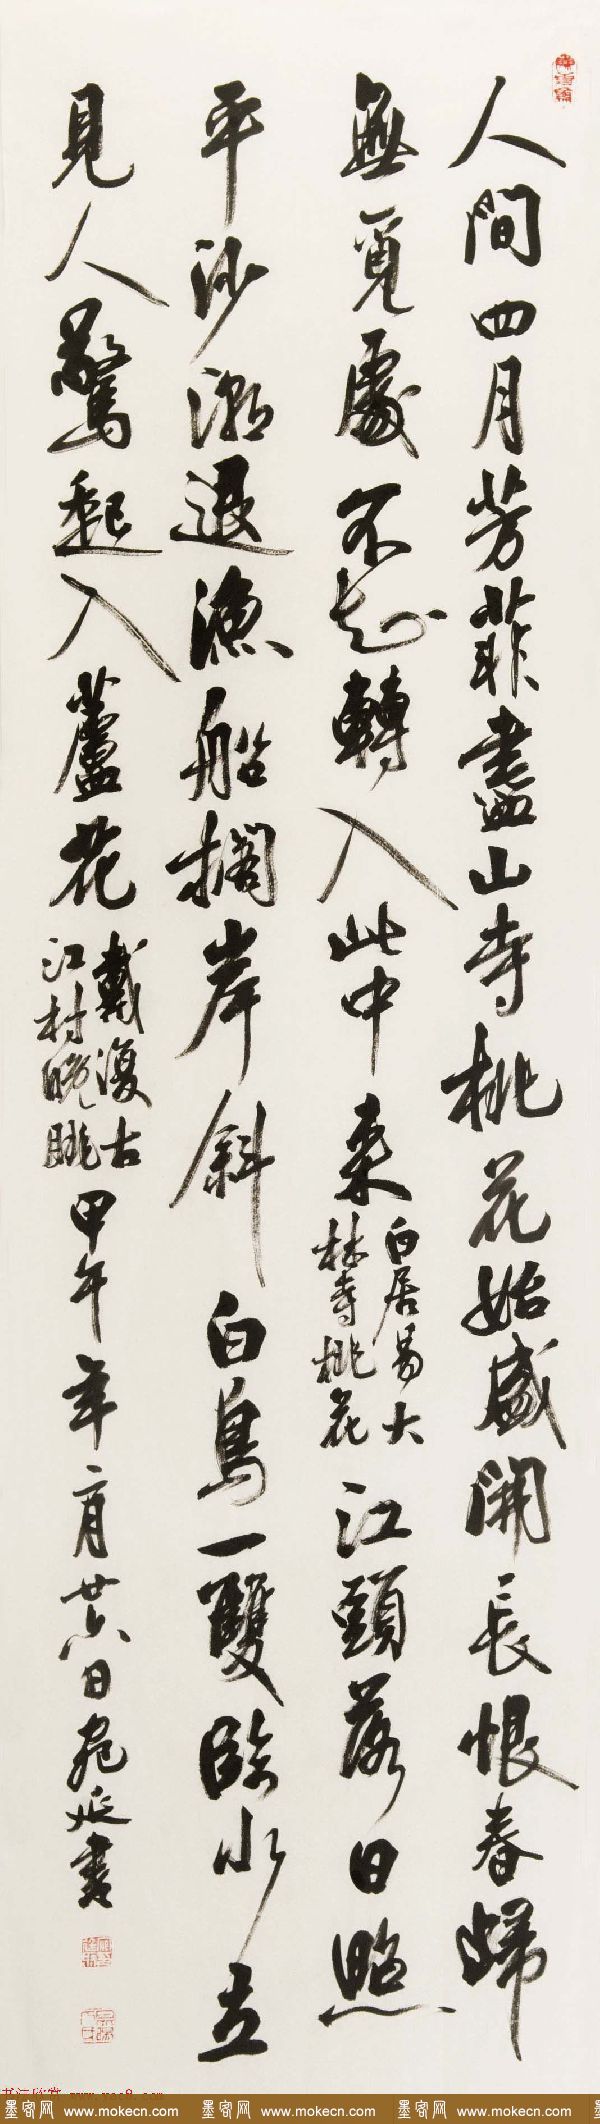 人間四月芳菲盡山寺桃花始盛開長恨春歸
無覓處不知轉入此中來
白居易大
林寺桃花
江頭落日照
平沙潮退漁船擱岸斜白鳥一雙臨水立
見人驚起入蘆花
戴復古
江村晚眺
甲午年二月廿六日宛延書
墨客网 www.mokecn.com 墨客网 www.mokecn.com 墨客网 www.mokecn.com 墨客网 www.mokecn.com